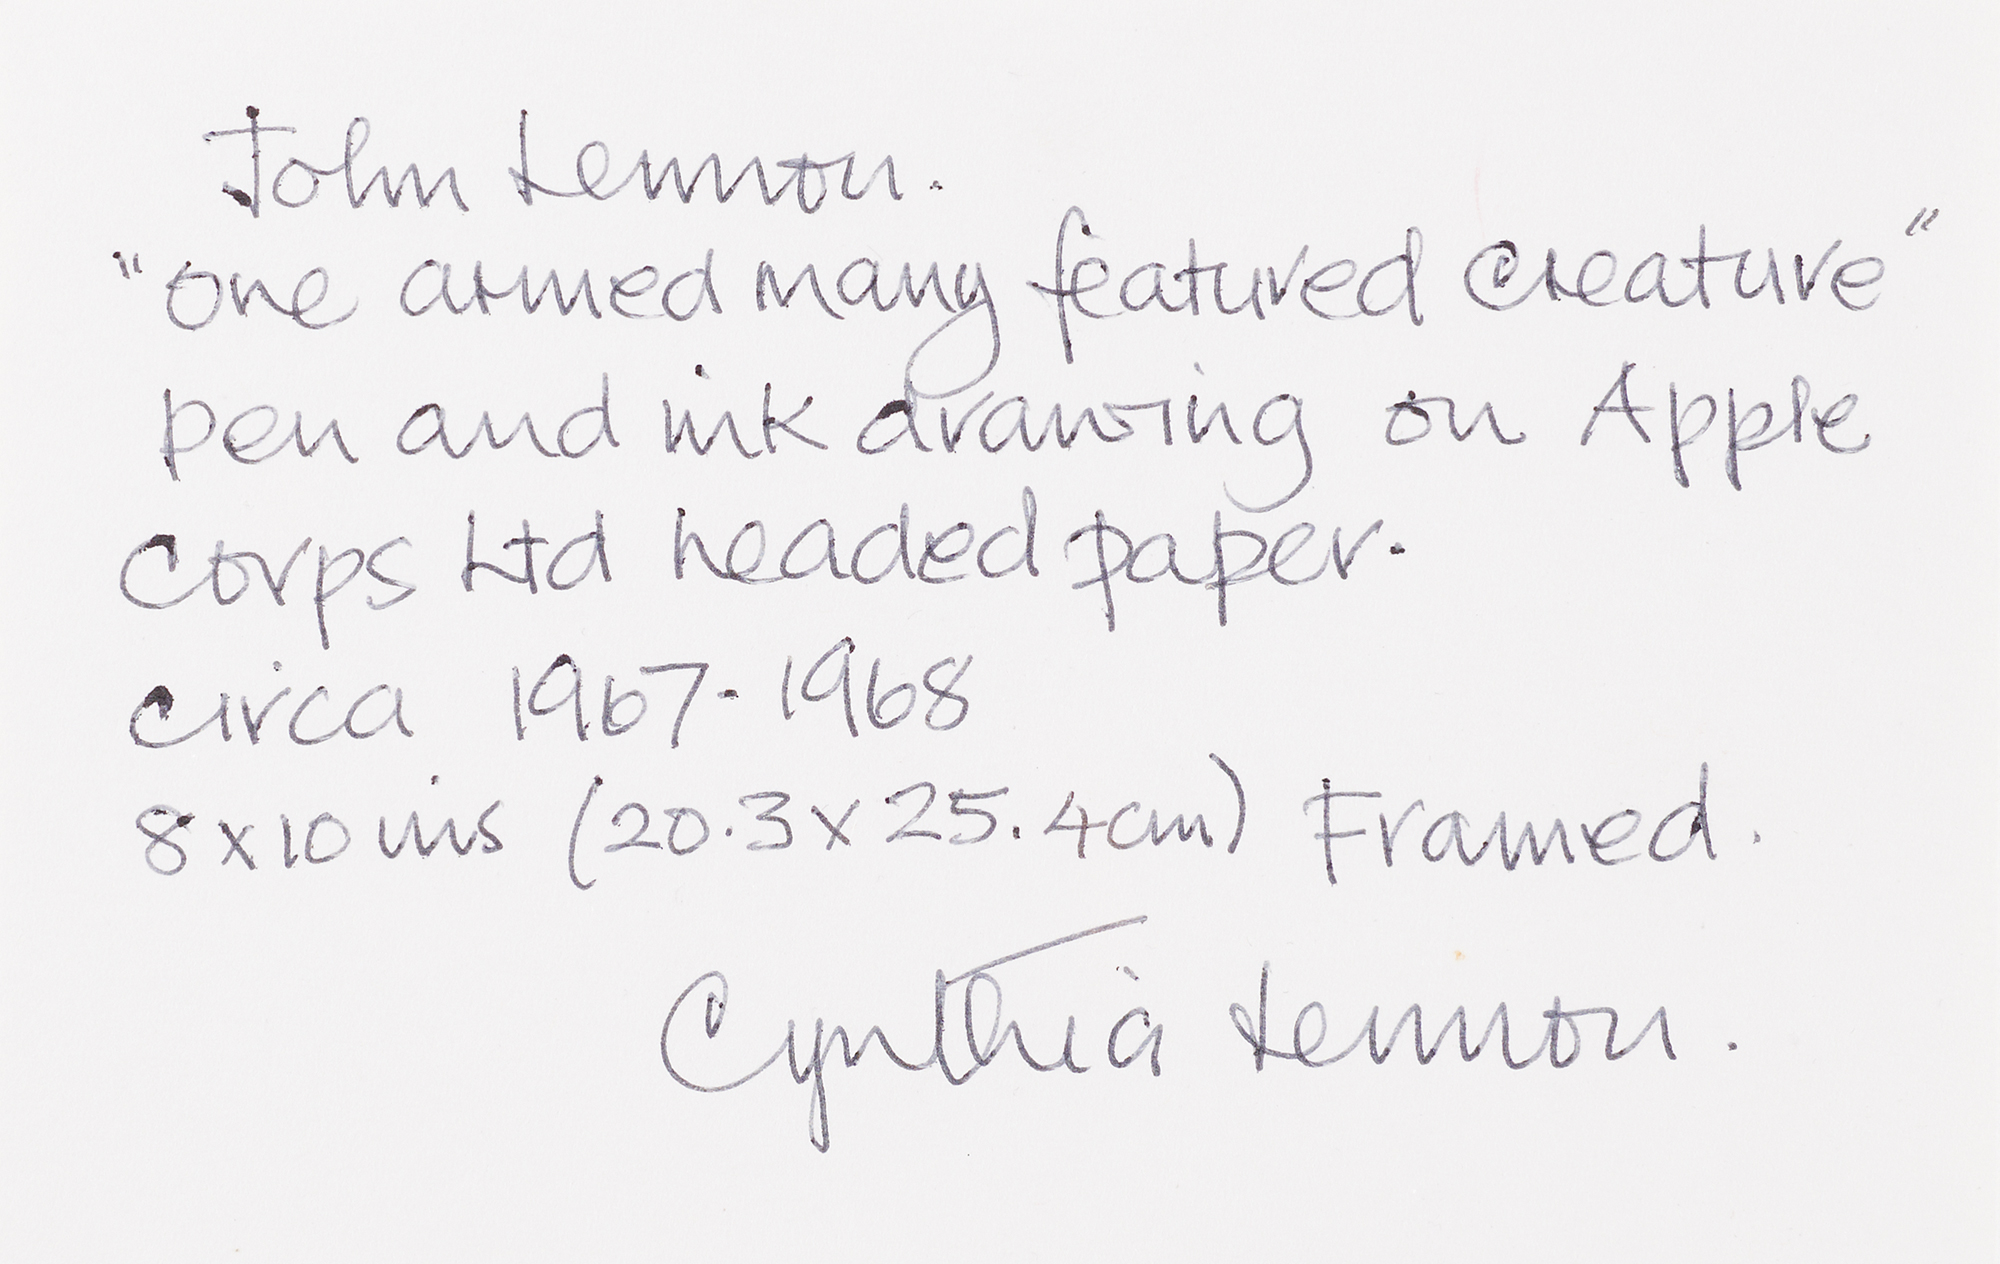 John Lennon.
"One armed many featured creature"
pen and ink drawing on Apple
Corps Ltd headed paper.
circa 1967-1968
8x10 ins (20.3x25.4cm) Framed.
Cynthia Lennon.